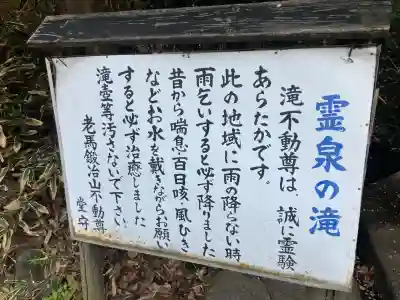 霊泉の滝
滝不動尊は、誠に霊験
あらたかです。
此の地域に雨の降らない時
雨乞いすると必ず降りました
昔から喘息百日咳、風ひき
などお水を戴きながらお願い
すると必ず治癒しました
滝壺等汚さないで下さい
老馬鍛冶山不動尊
堂守